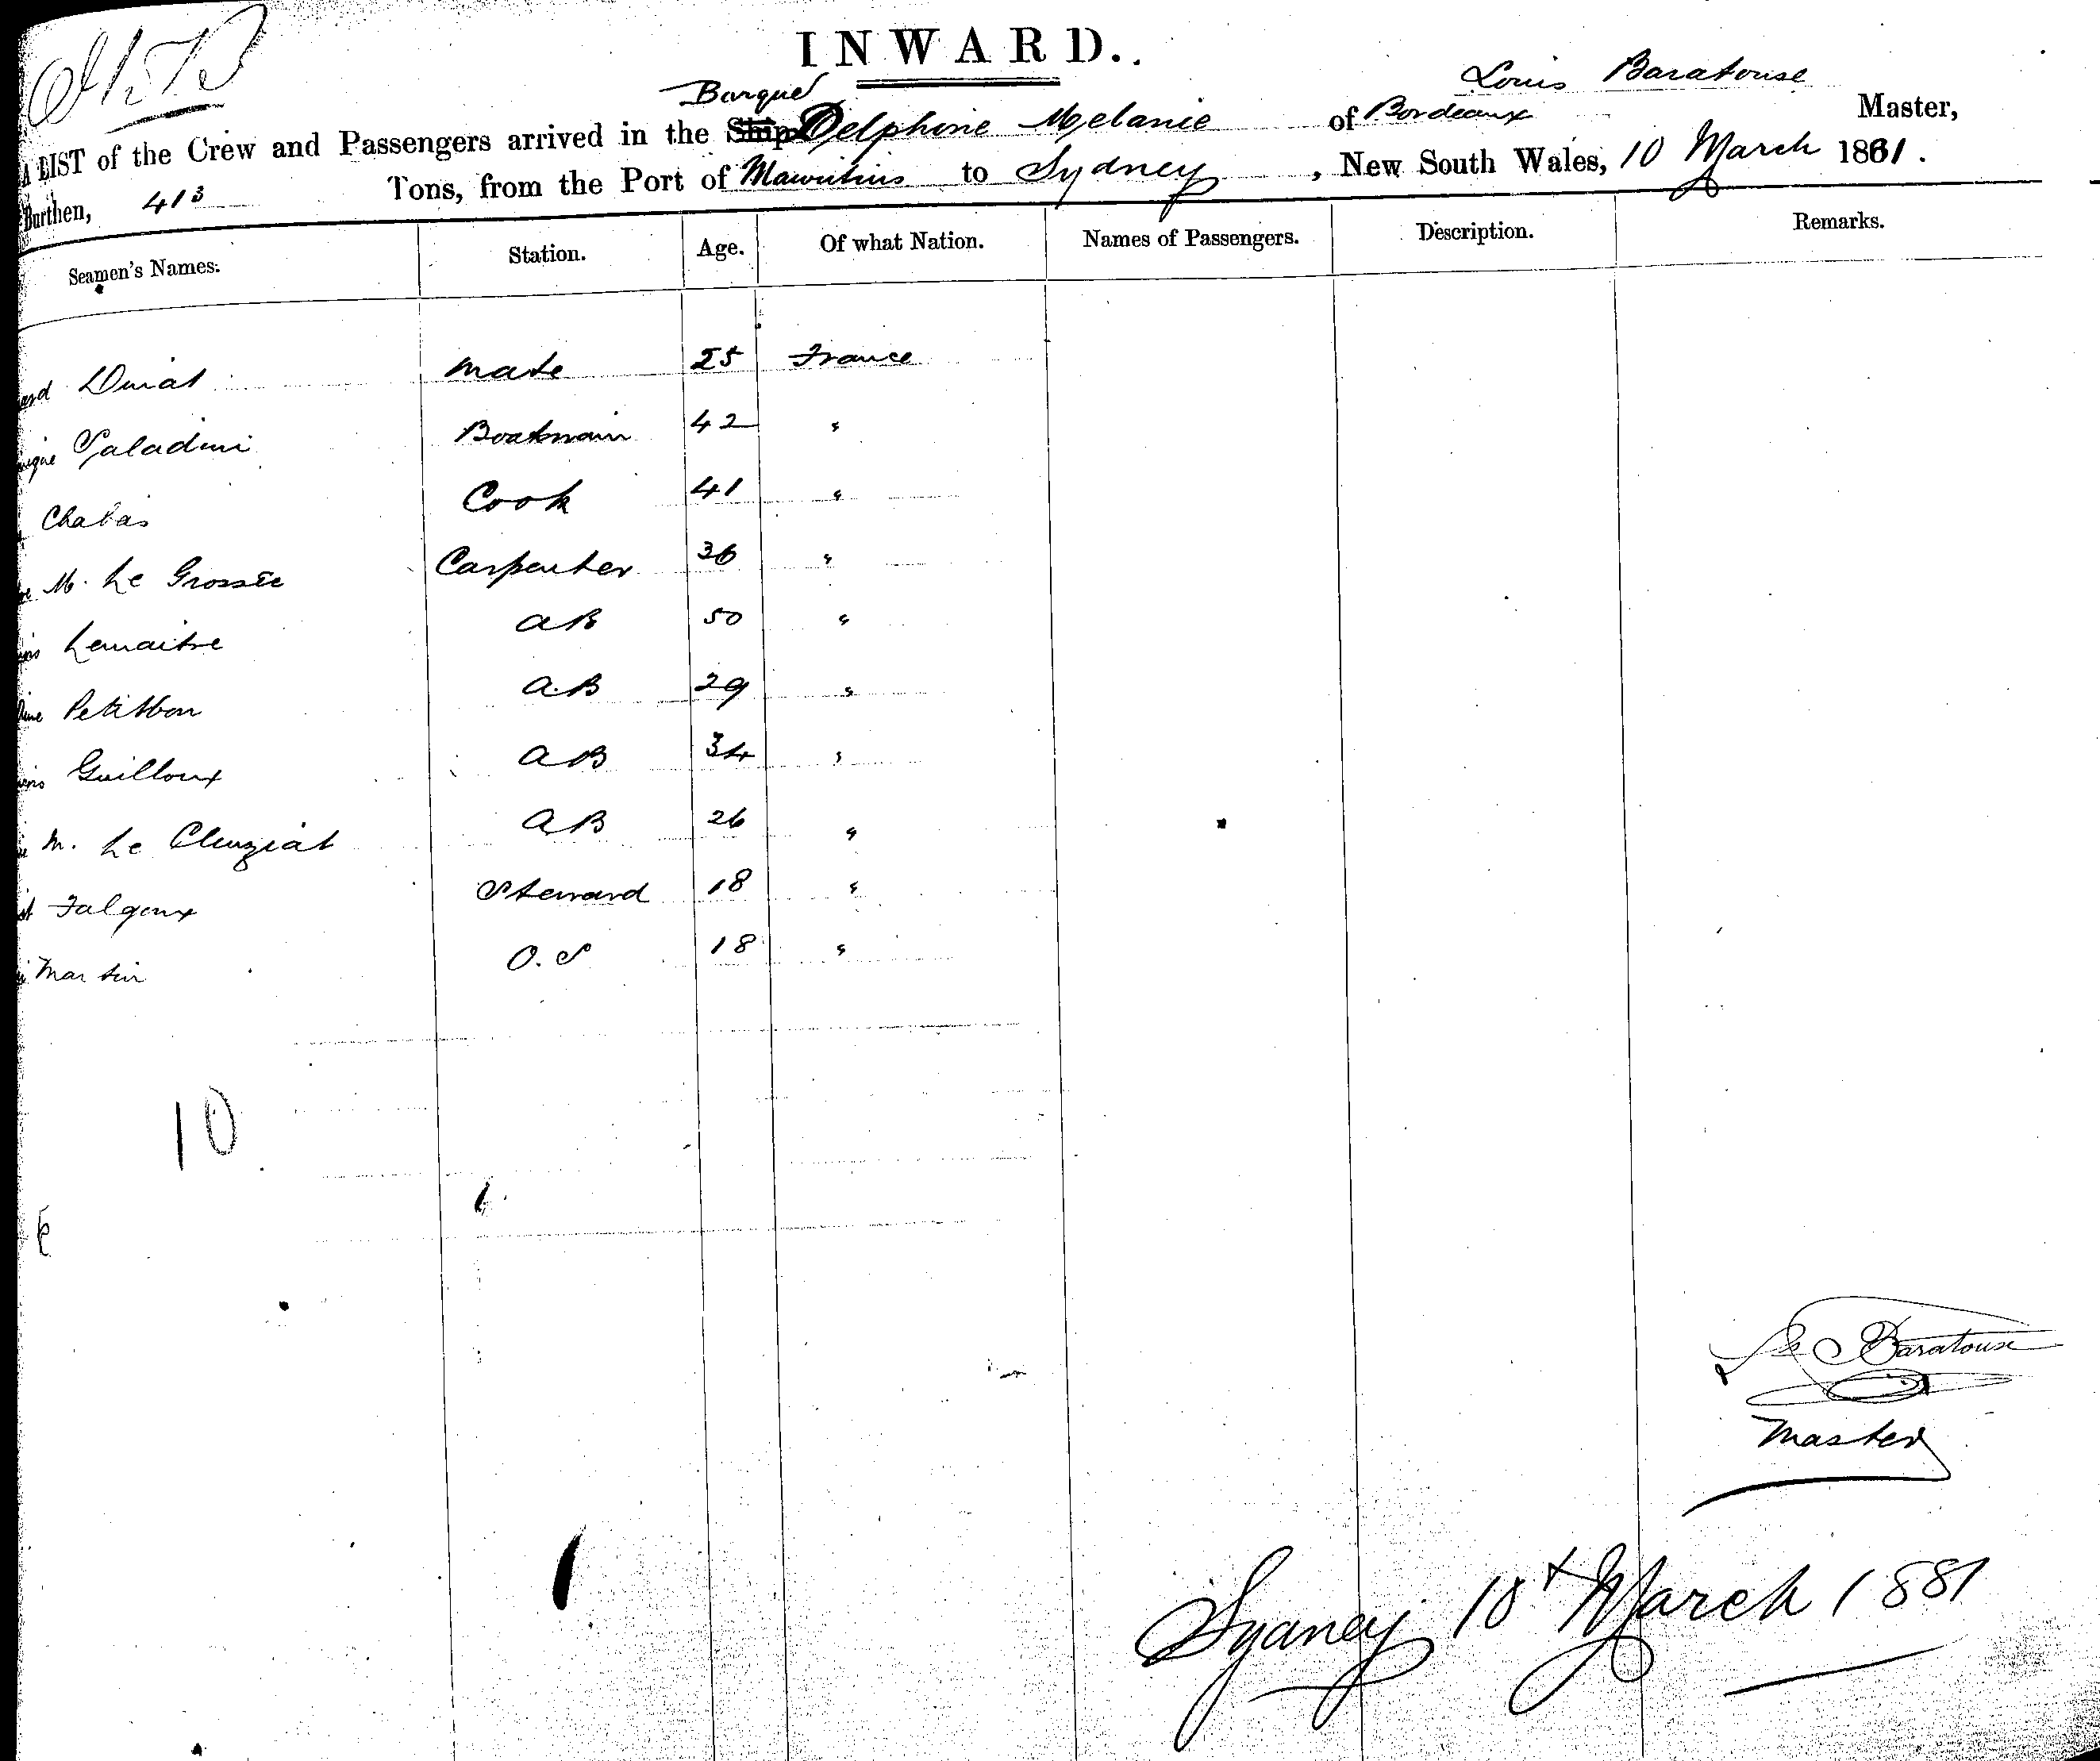 INWARD.
Louis Baratouse
Barque
A LIST of the Crew and Passengers arrived in the Ship Delphine Melanie of Bordeaux Master,
Burthen, 413 Tons, from the Port of Mauritius to Sydney, New South Wales, 10 March 1881.
Seamen's Names. Station. Age. Of what Nation. Names of Passengers. Description. Remarks.
Mate 25 France
Paladini Boatswain 42 "
Chabas Cook 41 "
M. Le Grossec Carpenter 36 "
Lemaitre AB 50 "
Petitbon A.B 29 "
Guilloux AB 34 "
M. Le Cleuziat AB 26 "
Falgoux Steward 18 "
Martin O.S 18 "
10
Baratouse
Master
Sydney 10th March 1881